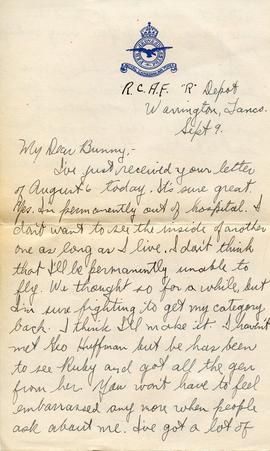 R.C.A.F "R" Depot
Warrington, Lancs.
Sept 9.
My Dear Bunny,-
I've just received your letter
of August 6 today. It's sure great
Yes. I'm permanently out of hospital. I
don't want to see the inside of another
one as long as I live. I don't think
that I'll be permanently unable to
fly. We thought so for a while, but
I'm sure fighting to get my category
back. I think I'll make it. I haven't
met Geo Huffman but he has been
to see Ruby and got all the gen
from her. You won't have to feel
embarrassed any more when people
ask about me. I've got a lot of